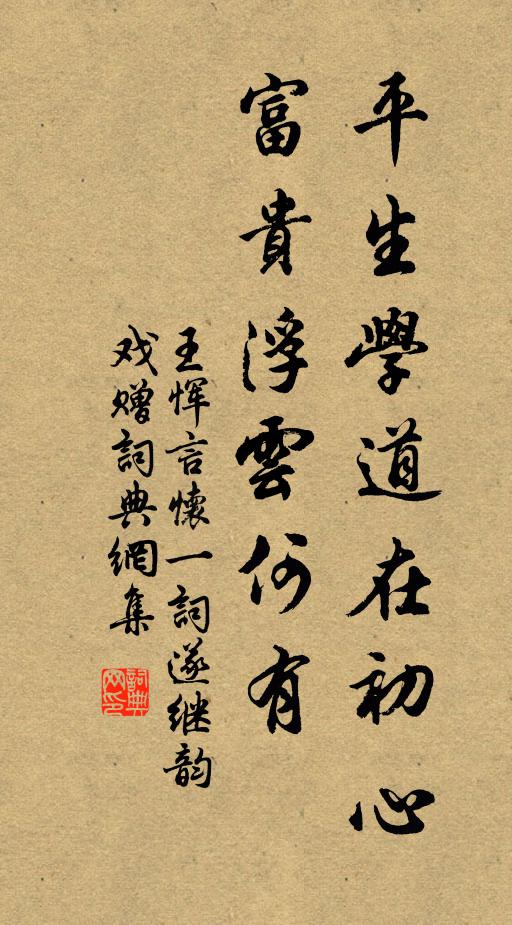 平生學道在初心
富貴浮雲何有
王惲言懷一詞遂继韵
戏赠詞典網集
詞典网印